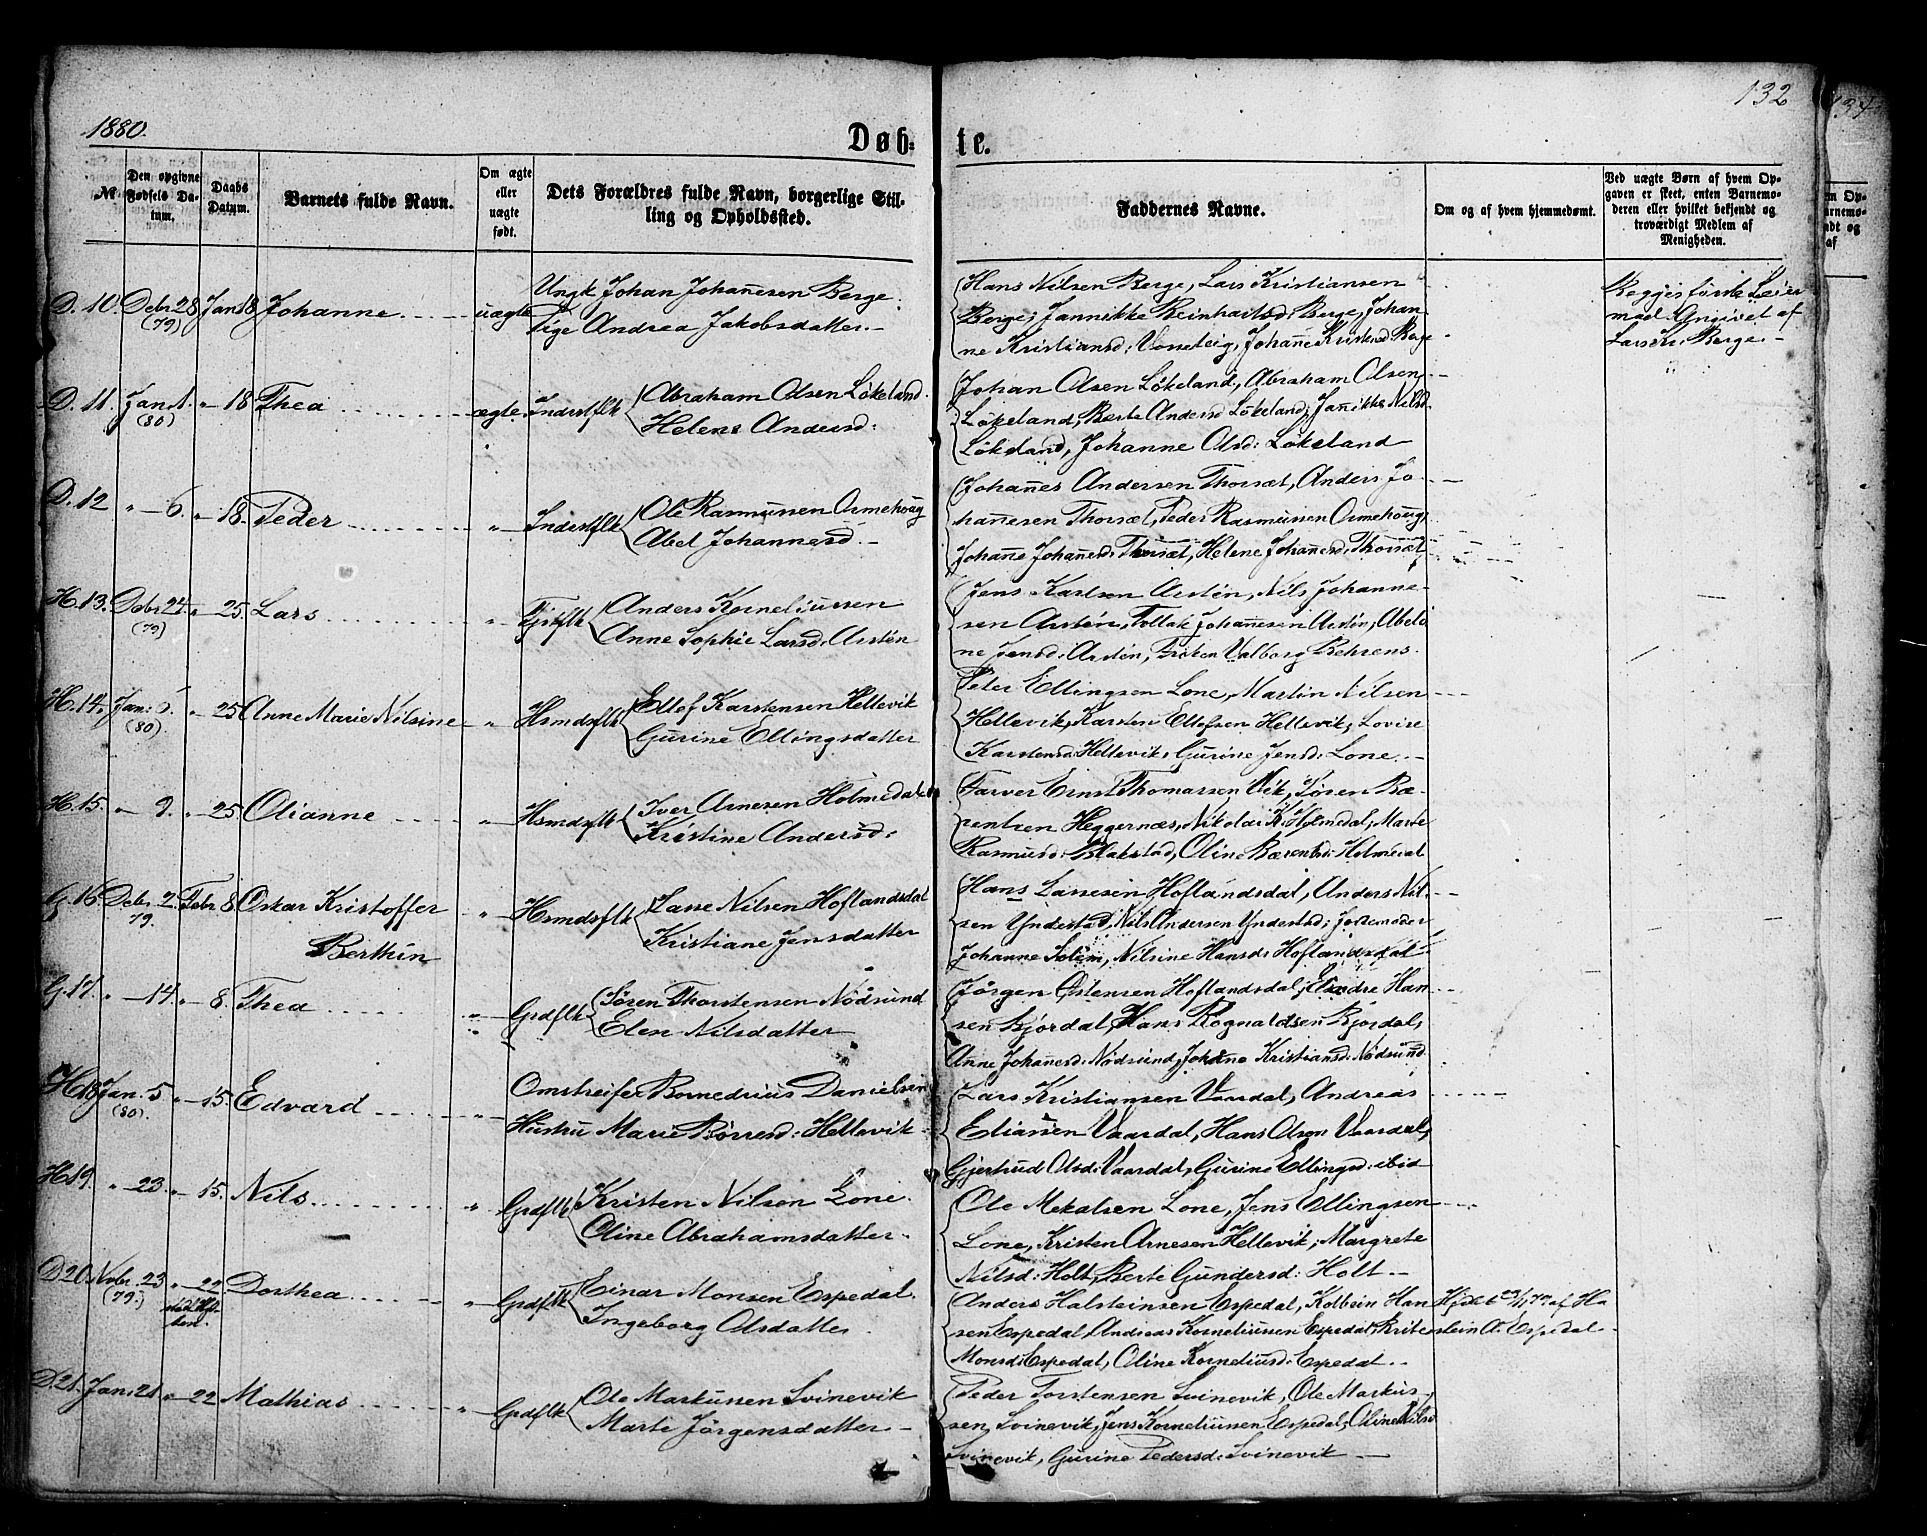 132
1880.
Døb- te.
№
Den opgivne Fødsels Datum.
Daabs Datum.
Barnets fulde Navn.
Om ægte eller uægte født.
Dets Forældres fulde Navn, borgerlige Stilling og Opholdssted.
Faddernes Navne.
Om og af hvem hjemmedøbt.
Ved uægte Børn af hvem Opgaven er skeet, enten Barnemoderen eller hvilket bekjendt og troværdigt Medlem af Menigheden.
D. 10. Debr 28 (79) Jan 18 Johanne uægte
Ungk Johan Johan̄esen Berge.
Pige Andrea Jakobsdatter.
Hans Nilsen Berge, Lars Kristiansen
Berge, Jannikke Reinhartsd: Berge, Johan-
ne Kristiansd: Vosseteig, Johan̄e Kristensd Berge
Begges første Leier
maal Angivet af
Lars Kr. Berge.
D. 11. Jan. 1. (80) " 18 Thea ægte. Inderstflk
Abraham Olsen Løkeland.
Helene Andersd:
Johan Olsen Løkeland, Abraham Olsen
Løkeland, Berte Andersd Løkeland, Jan̄ikke Nilsd.
Løkeland, Johanne Olsd: Løkeland
D. 12 " 6. " 18. Peder " Inderstflk
Ole Rasmussen Ormehoug
Abel Johannesd.
Johan̄es Andersen Thorsæt, Anders Jo-
han̄esen Thorsæt, Peder Rasmussen Ormehoug,
Johan̄e Johan̄esd: Thorsæt, Helene Johan̄esd: Thorsæt
H. 13. Debr 24. (79) " 25. Lars "
Anders Korneliussen
Anne Sophie Larsd:
Jens Karlsen
Nils Johanne-
sen
Tollak Johan̄esen
Abelo
ne Jensd:
Frøken Valborg Behrens.
H. 14. Jan: 5. (80) " 25 Anne Marie Nilsine " Hsmdsflk
Ellef Karstensen Hellevik
Gurine Ellingsdatter
Peter Ellingsen Lone, Martin Nilsen
Hellevik, Karsten Ellefsen Hellevik, Lovise
Karstensd: Hellevik, Gurine Jensd: Lone.
H. 15. " 9. " 25. Olianne " Hsmdsflk
Iver Arnesen Holmedal
Kristine Andersd:
Farver Ernst Thomassen Vik, Søren Bæ-
rentsen Heggernæs, Nikolai K. Holmedal, Marte
Rasmusd: Blakstad, Oline Bærentsd: Holmedal
G. 16 Debr 2. 79. Febr 8. Oskar Kristoffer Berthin " Hsmdsflk
Lasse Nilsen Hoflandsdal
Kristiane Jensdatter
Hans Lassesen Hoflandsdal, Anders Nil-
sen Yndestad, Nils Andersen Yndestad, Jordemoder
Johanne Solem, Nilsine Hansd: Hoflandsdal
G. 17. " 14. " 8. Thea " Grdflk
Søren Thorstensen Nødsund
Elen Nilsdatter
Jørgen Østensen Hoflandsdal, Endre Han-
sen Bjordal, Hans Rognaldsen Bjordal,
Anne Johan̄esd: Nødsund, Johan̄e Kristiansd: Nødsund
H. 18. Jan. 5 (80). " 15. Edvard "
Omstreifer Bornedrius Danielsen
Hustru Marie Børresd: Hellevik
Lars Kristiansen Vaardal, Andreas
Eliassen Vaardal, Hans Olsen Vaardal,
Gjertrud Olsd: Vaardal, Gurine Ellingsd: ibid
H. 19. " 23. " 15. Nils " Grdflk
Kristen Nilsen Lone.
Oline Abrahamsdatter.
Ole Mekalsen Lone, Jens Ellingsen
Lone, Kristen Arnesen Hellevik, Margrete
Nilsd: Holt, Berte Gundersd: Holt
D. 20. Novbr. 23 (79.) " 22 Dorthea " Grdflk
Einar Monsen Espedal.
Ingeborg Olsdatter.
Anders Halsteinsen Espedal, Kolbein Han
sen Espedal, Andreas Korneliussen Espedal,
Monsd: Espedal, Oline Korneliusd: Espedal
Hjdbt 23/11 79 af Ha
lstein A. Espedal
D. 21. Jan. 21. " 22 Mathias " Grdflk
Ole Markussen Svinevik
Marte Jørgensdatter
Peder Torstensen Svinevik, Ole Markus-
sen Svinevik, Jens Korneliussen Espedal, Oline Nilsd
Svinevik, Gurine Pedersd: Svinevik